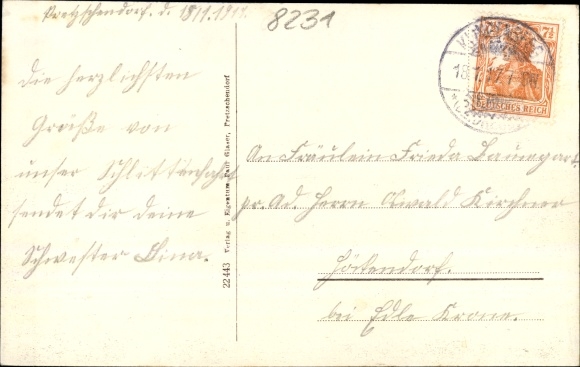 Pretzschendorf. d. 18.1.1917.
8231
Die herzlichsten
Grüße von
unser Schlittenfahrt
sendet dir deine
Schwester Lina.
22 443 Verlag u. Eigentum Glaser, Pretzschendorf
7½
DEUTSCHES REICH
An Fräulein Frieda Baumgart.
pr. Ad. Herrn Oswald Kirchner
Höckendorf.
bei Edle Krone.